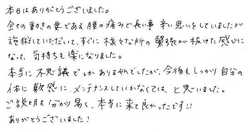 本日はありがとうございました。
全ての動きの要である腰の痛みで長い事辛い思いをしていましたが
施術していただいて、すぐに様々な所の緊張が抜けた感じに
なって、気持ちも楽になりました。
本当に不思議でしかありませんでしたが、今後もしっかり自分の
体に敏感にメンテナンスしていかなくては、と思いました。
ご説明も分かり易く、本当に来て良かったです!!
ありがとうございました!